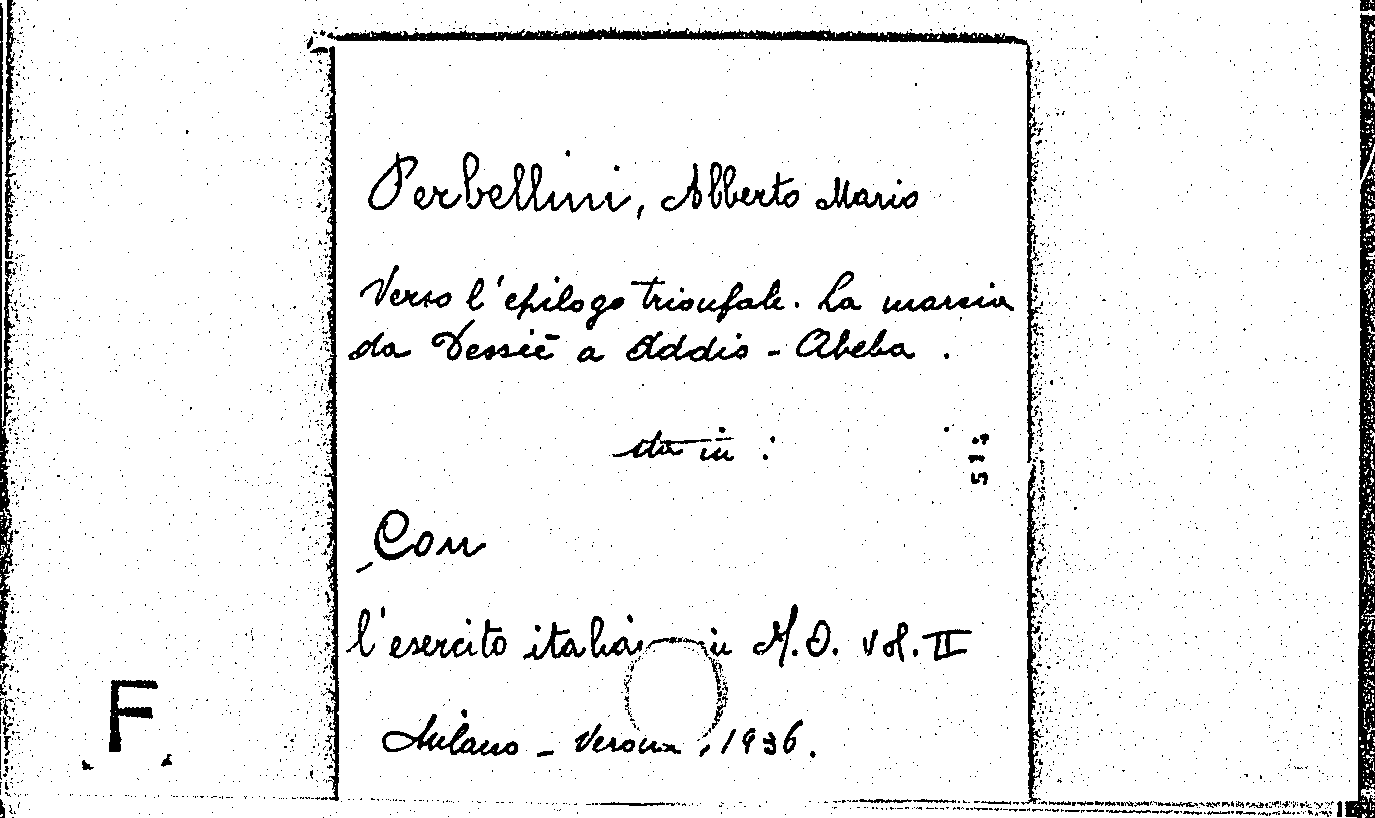 Perbellini, Alberto Mario
Verso l'epilogo trionfale. La marcia
da Dessiè a Addis-Abeba.
sta in:
514
Con
l'esercito italiano in A.O. vol. II
F
Milano - Verona, 1936.